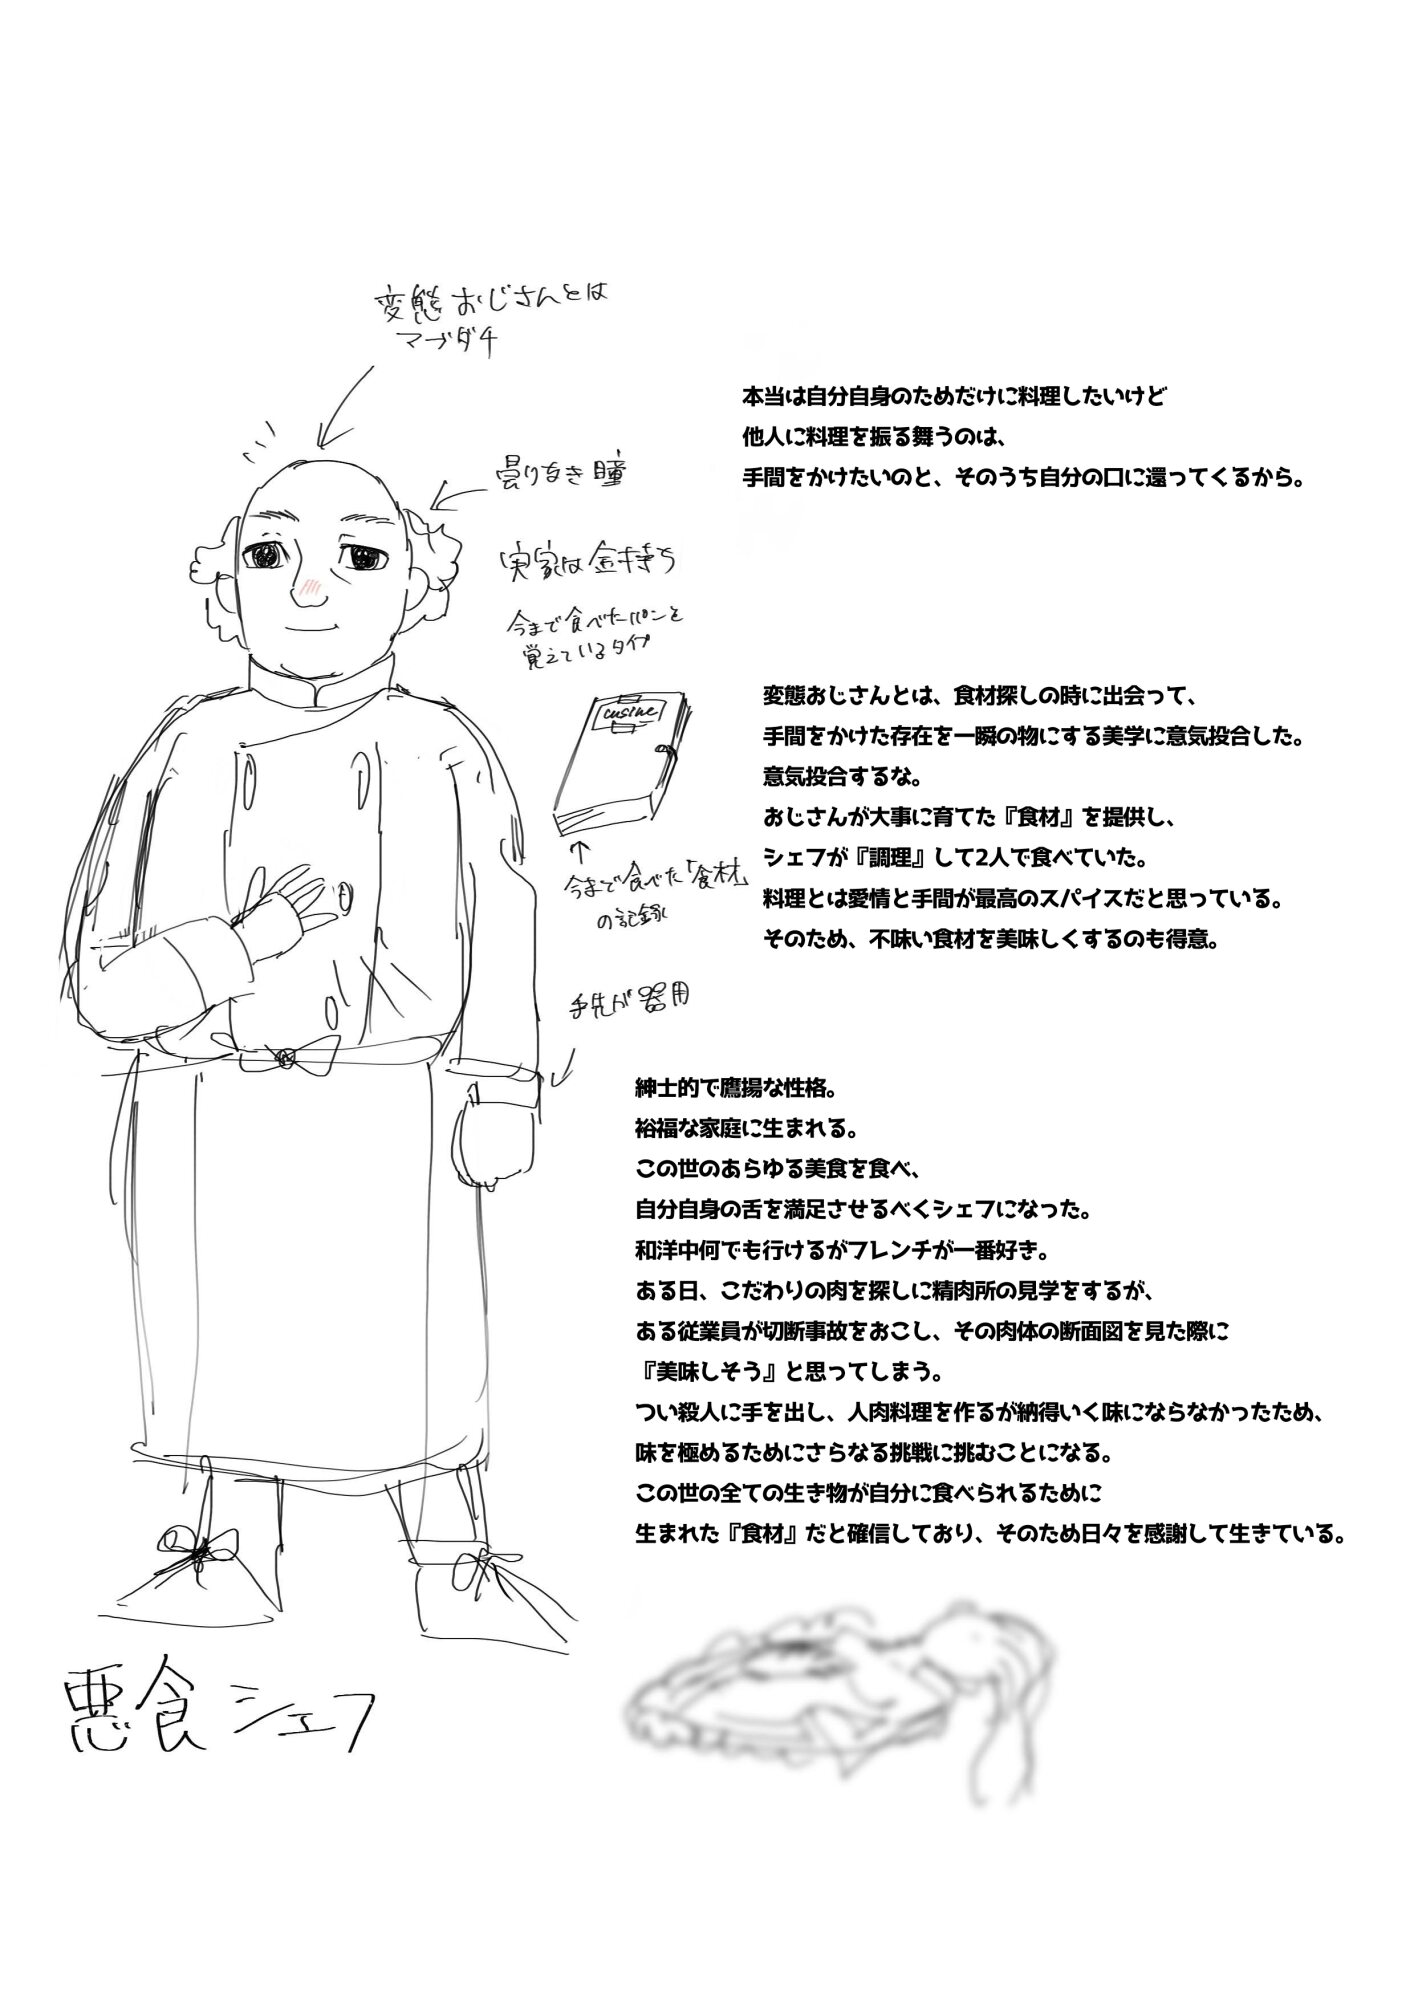 変態おじさんとは
マブダチ
曇りなき瞳
実家は金持ち
今まで食べたパンを
覚えているタイプ
cusine
今まで食べた「食材」
の記録
手先が器用
本当は自分自身のためだけに料理したいけど
他人に料理を振る舞うのは、
手間をかけたいのと、そのうち自分の口に還ってくるから。
変態おじさんとは、食材探しの時に出会って、
手間をかけた存在を一瞬の物にする美学に意気投合した。
意気投合するな。
おじさんが大事に育てた『食材』を提供し、
シェフが『調理』して2人で食べていた。
料理とは愛情と手間が最高のスパイスだと思っている。
そのため、不味い食材を美味しくするのも得意。
紳士的で鷹揚な性格。
裕福な家庭に生まれる。
この世のあらゆる美食を食べ、
自分自身の舌を満足させるべくシェフになった。
和洋中何でも行けるがフレンチが一番好き。
ある日、こだわりの肉を探しに精肉所の見学をするが、
ある従業員が切断事故をおこし、その肉体の断面図を見た際に
『美味しそう』と思ってしまう。
つい殺人に手を出し、人肉料理を作るが納得いく味にならなかったため、
味を極めるためにさらなる挑戦に挑むことになる。
この世の全ての生き物が自分に食べられるために
生まれた『食材』だと確信しており、そのため日々を感謝して生きている。
悪食シェフ